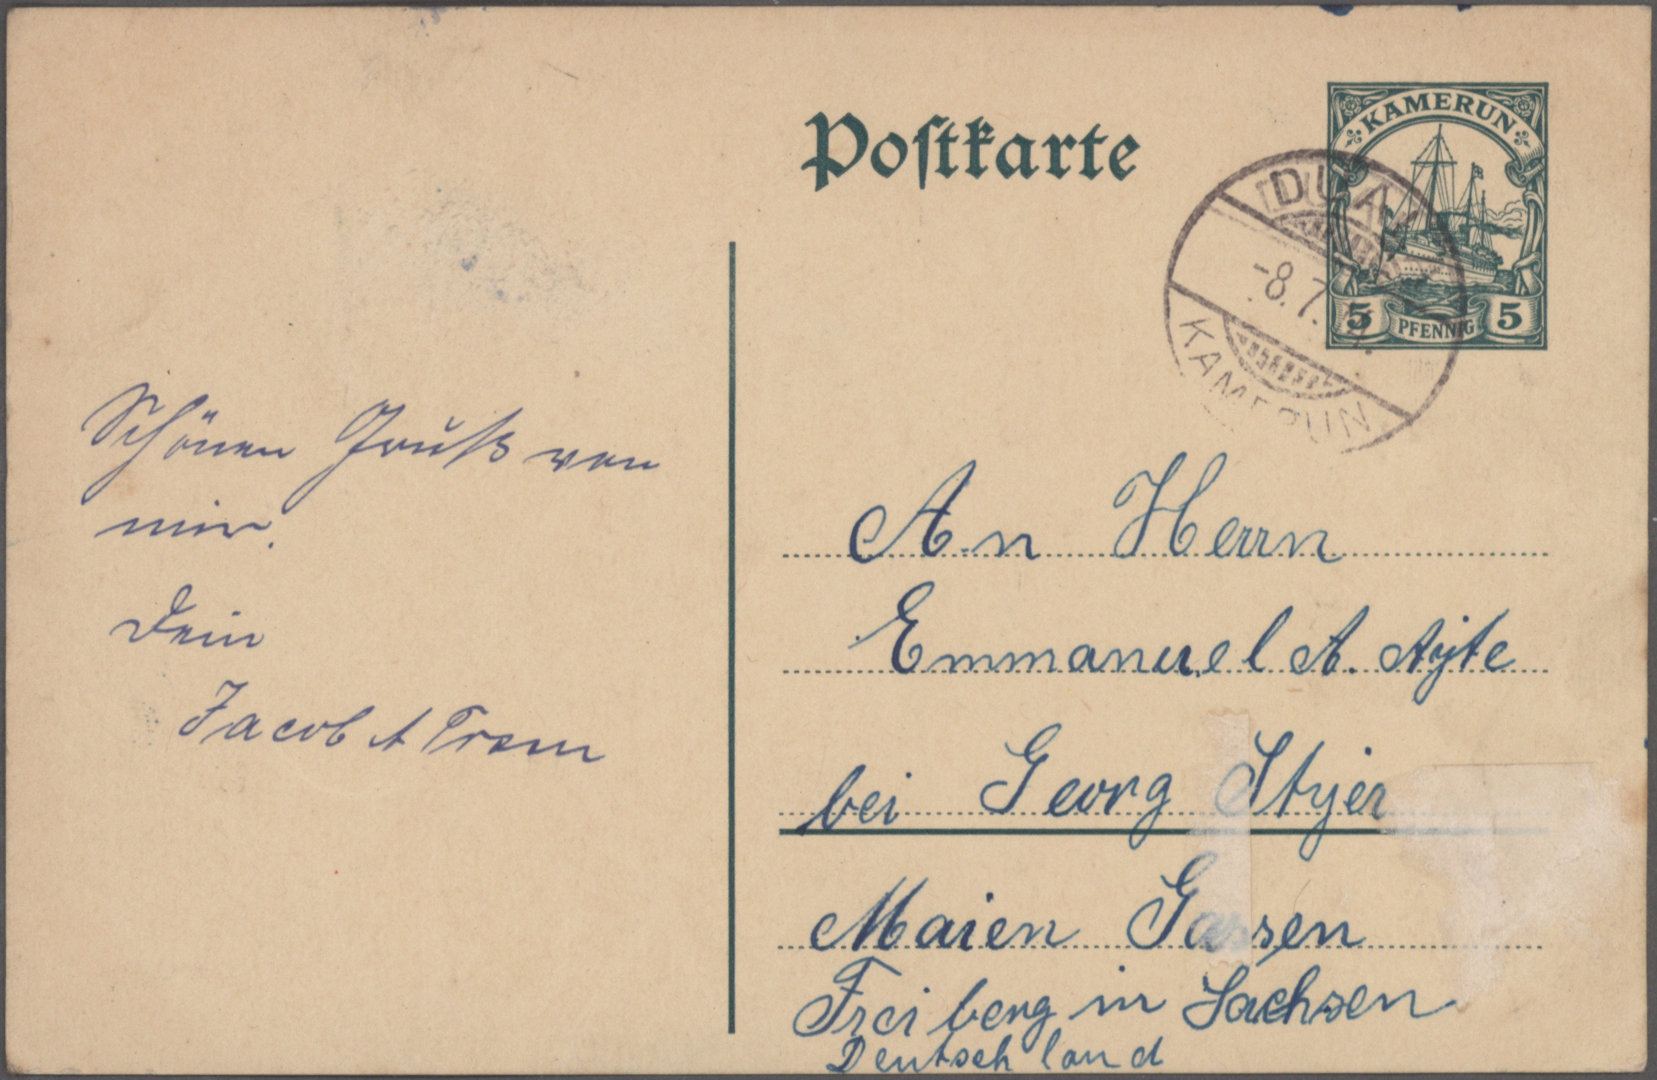 Postkarte
KAMERUN
5 PFENNIG 5
DUALA
-8.7.
KAMERUN
Schönen Gruß von
mir.
Dein
Jacob A
An Herrn
Emmanuel A.
bei Georg
Maien Gassen
Freiberg in Sachsen
Deutschland